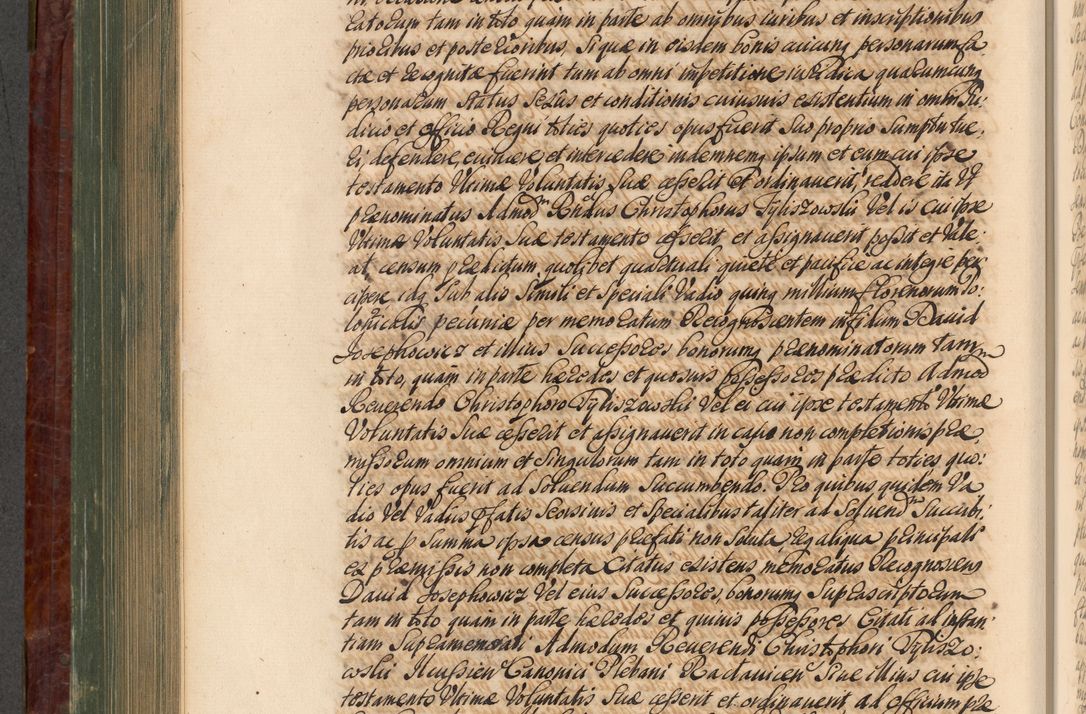 catorum tam in toto quam in parte ab omnibus iuribus et inscriptionibus
prioribus et posterioribus, Si quæ in eisdem bonis cuicunq personarum fa-
ctæ et recognitæ fuerint tum ab omni impetitione iuridica quarumcunq
personarum Status Sexus et conditionis cuiusuis existentium in omni Iu:
dicio et officio Regni toties quoties opus fuerit Suo proprio Sumptu tue,
ri, defendere, euincere et intercedere indemnemq ipsum et eum cui ipse
testamento Vltimæ Voluntatis Suæ cesserit et ordinauerit, reddere ita Vt
prænominatus Admodm Rndus Christophorus Tyliszowski Vel is cui ipse
Vltimæ Voluntatis Suæ testamento cesserit et assignauerit possit et Vale:
at censum prædictum, quolibet quartuali quiete et pacifice ac integre per
cipere idq Sub alio Simili et Speciali Vadio quinq millium florenorum Po:
lonicalis pecuniæ per memoratum Recognoscentem infidum Dauid
Josephowicz et illius Successores bonorumq prænominatorum tam
in toto, quam in parte hæredes et quosuis possessores prædicto Admod
Reuerendo Christophoro Tyliszowski Vel ei cui ipse testamento Vltimæ
Voluntatis Suæ cesserit et assignauerit in casu non completionis præ
missorum omnium et Singulorum tam in toto quam in parte toties quo:
ties opus fuerit ad Soluendum Succumbendo. Pro quibus quidem Va
dio Vel Vadiis pfatis Seorsiuis et Specialibus taliter ad Soluendm Succubi
tis ac p Summa ipsa census præfati non Soluta, reg aliqua principali
ex præmissis non completa Citatus existens memoratus Recognoscens
Dauid Josephowicz Vel eius Successores, bonorumq Suprascriptorum
tam in toto quam in parte hæredes et quiuis possessores Citati ad instan
tiam Supramemorati Admodum Reuerendi Christophori Tylisz:
owski Canonici Plebani Siue illius cui ipse
testamento Vltimæ Voluntatis Suæ cesserit et ordinauerit ad officium præ